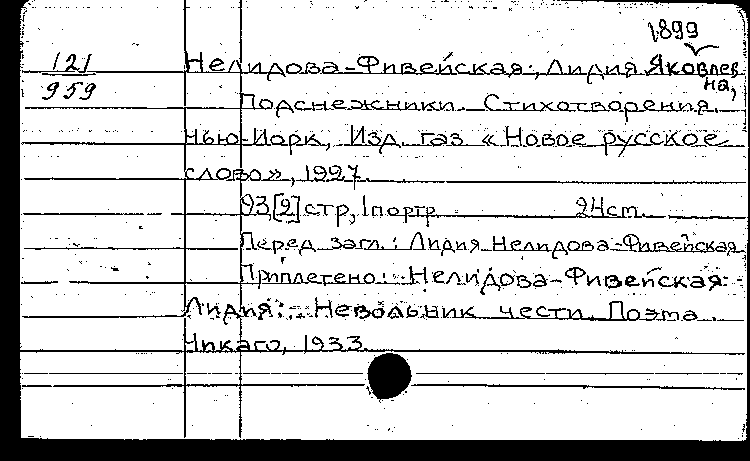 1899
121
959
Нелидова-Фивейская, Лидия Яковлев
на,
Подснежники. Стихотворения.
Нью-Йорк, Изд. газ «Новое русское
слово», 1927.
93,[2]стр, 1портр 24см.
Перед загл.: Лидия Нелидова-Фивейская
Приплетено: Нелидова-Фивейская
Лидия: Невольник чести. Поэма.
Чикаго, 1933.